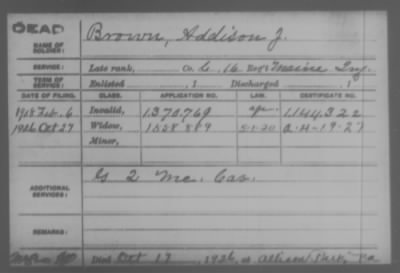 DEAD
NAME OF SOLDIER: Brown, Addison J.
SERVICE: Late rank, Co. C, 16 Reg't Maine Inf.
TERM OF SERVICE: Enlisted , 1 Discharged , 1
DATE OF FILING. CLASS. APPLICATION NO. LAW. CERTIFICATE NO.
1908 Feb. 6 Invalid, 1370769 1144322
1926 Oct 27 Widow, 5-1-20 a-4-19-27
Minor,
ADDITIONAL SERVICES: G 2 Me. Cav.
REMARKS:
Died Oct 17, 1926, at Allison Park, Pa